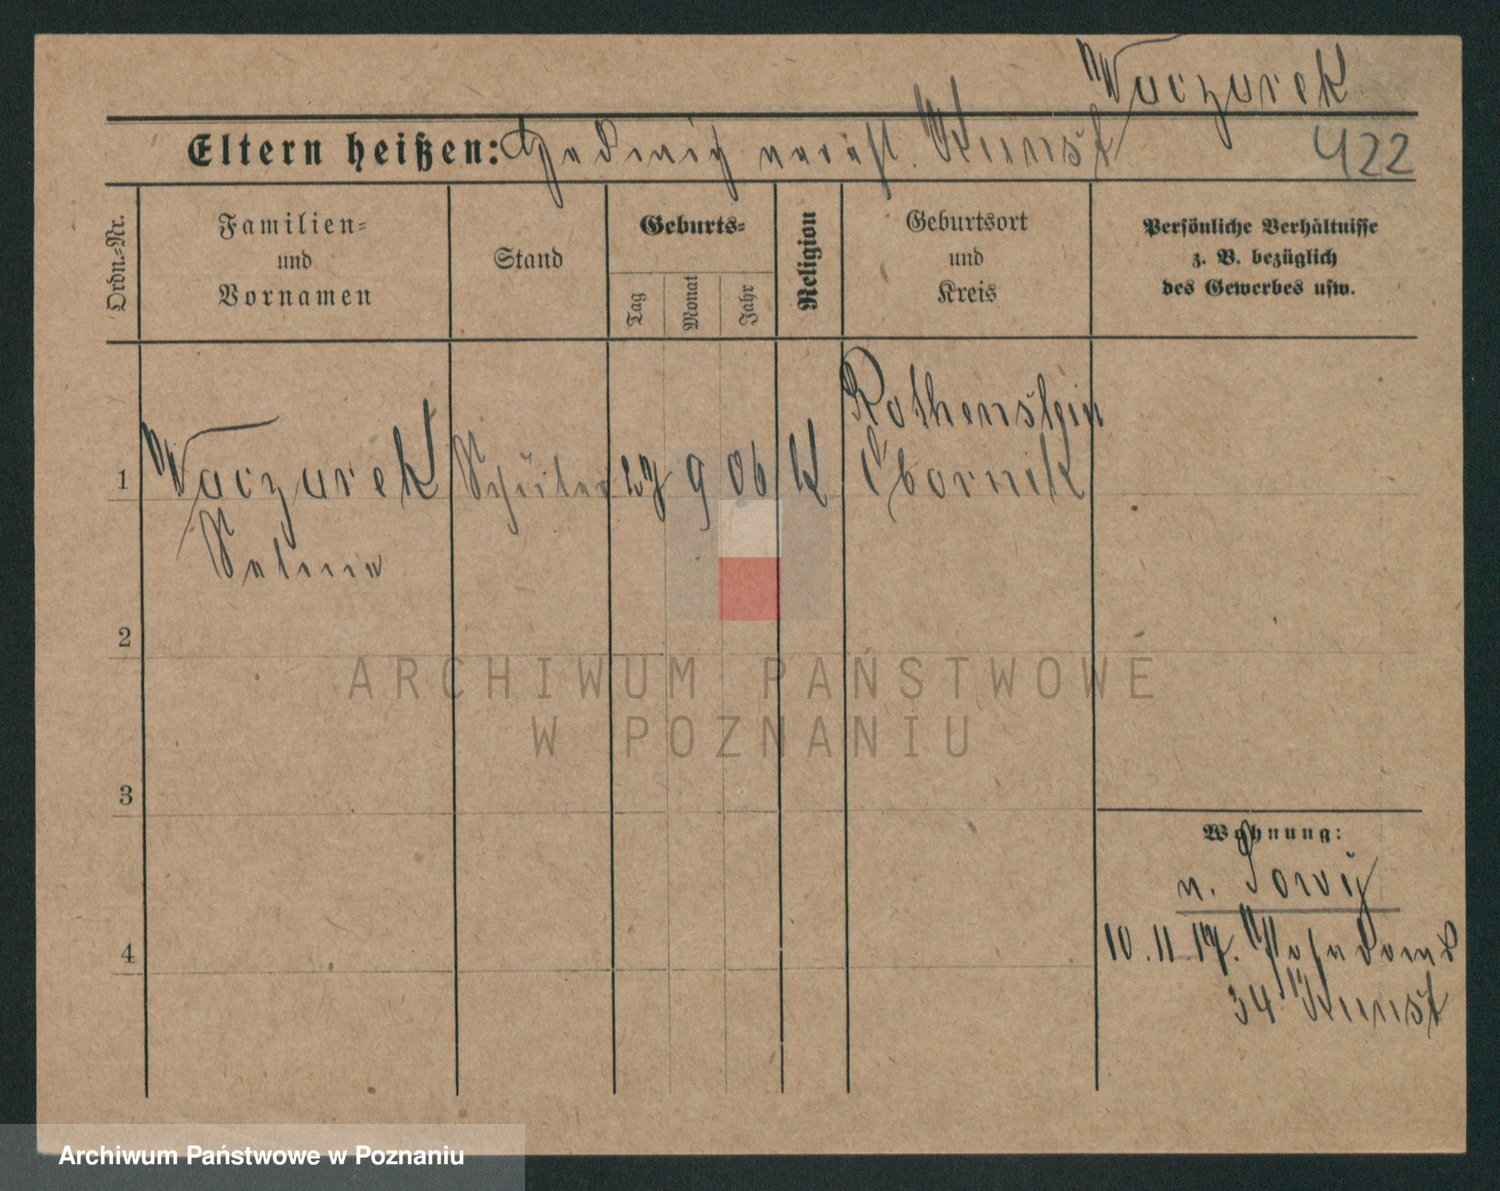 Waczurek
Eltern heißen: Hedwig verehl. Kunst
422
Ordn.-Nr.
Familien-
und
Vornamen
Stand
Geburts-
Tag
Monat
Jahr
Religion
Geburtsort
und
Kreis
Persönliche Verhältnisse
z. B. bezüglich
des Gewerbes usw.
1
Waczurek
Schüler 27 9 06 K
Rothenstein
Obornik
2
ARCHIWUM PAŃSTWOWE
W POZNANIU
3
Wohnung:
4
n.
10.11.17.
34 Kunst
Archiwum Państwowe w Poznaniu